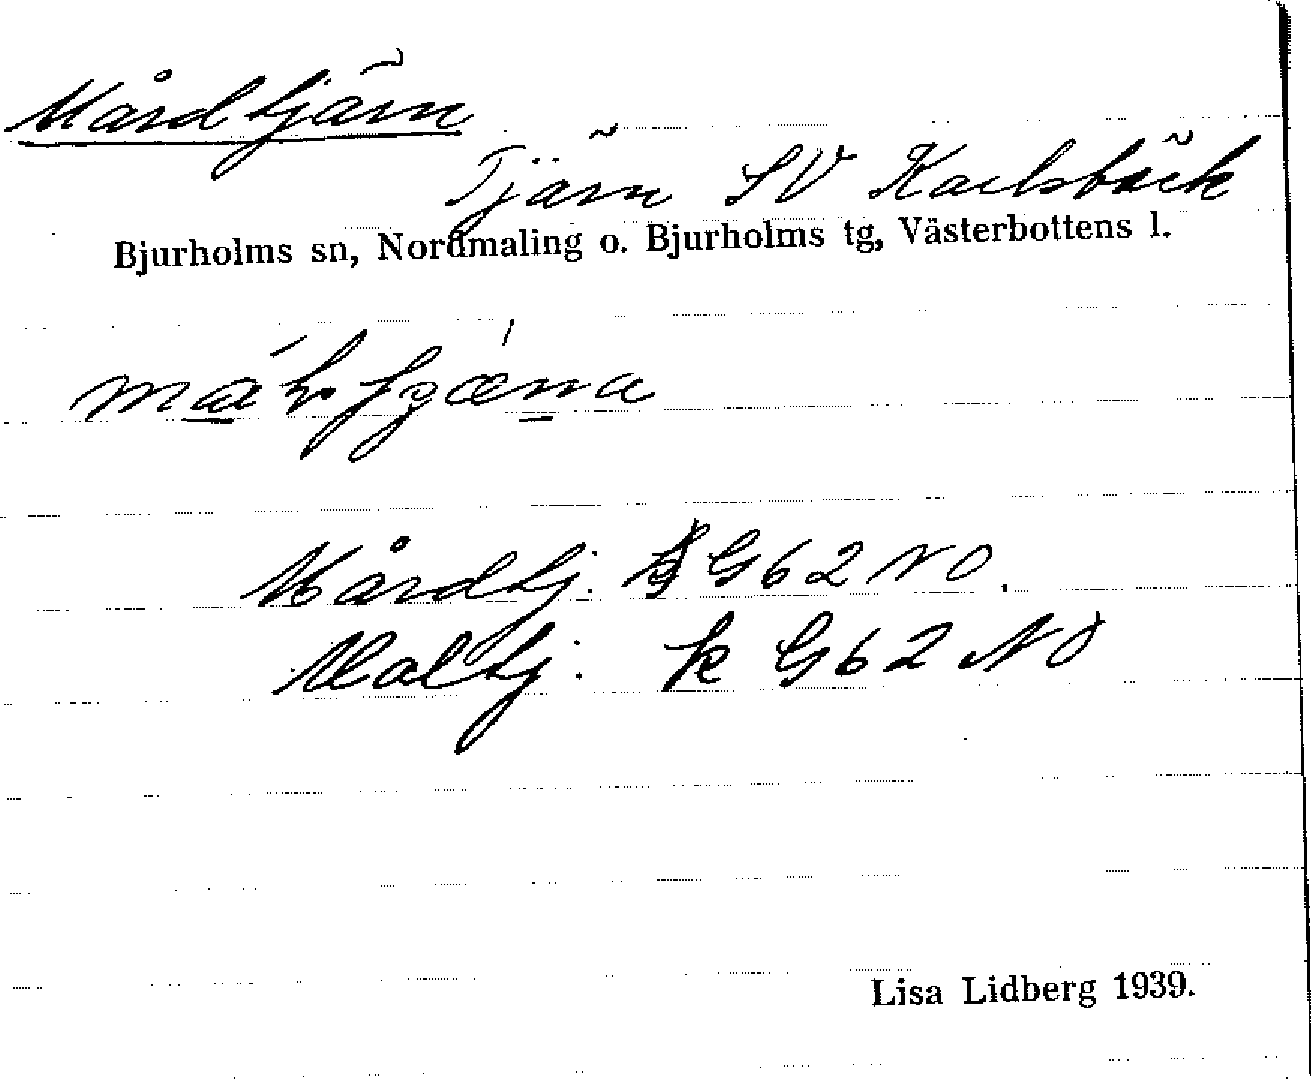 Mårdtjärn
Tjärn SV Karlsbäck
Bjurholms sn, Nordmaling o. Bjurholms tg, Västerbottens l.
Mårdtj. G62 NO.
tj. k G62 NO
Lisa Lidberg 1939.